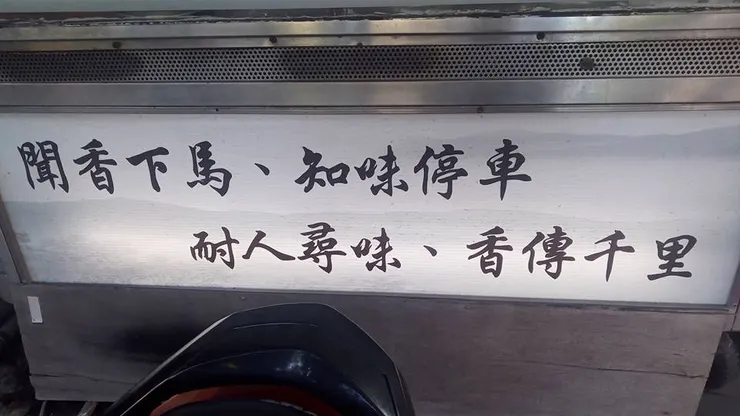 聞香下馬、知味停車
耐人尋味、香傳千里